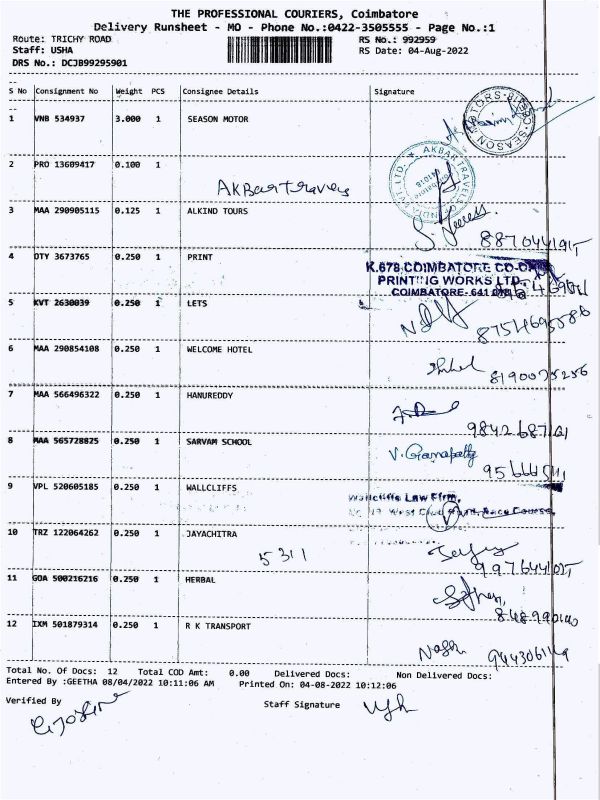 THE PROFESSIONAL COURIERS, Coimbatore
Delivery Runsheet - MO - Phone No.:0422-3505555 - Page No.:1
Route: TRICHY ROAD RS No.: 992959
Staff: USHA RS Date: 04-Aug-2022
DRS No.: DCJB99295901
S No Consignment No Weight PCS Consignee Details Signature
1 VNB 534937 3.000 1 SEASON MOTOR
2 PRO 13609417 0.100 1
AKBar travels
3 MAA 290905115 0.125 1 ALKIND TOURS
4 OTY 3673765 0.250 1 PRINT
K.678 COIMBATORE CO-OP
PRINTING WORKS LTD.,
COIMBATORE- 641 018
5 KVT 2630039 0.250 1 LETS
6 MAA 290854108 0.250 1 WELCOME HOTEL
8190075256
7 MAA 566496322 0.250 1 HANUREDDY
8 MAA 565728825 0.250 1 SARVAM SCHOOL
V. Ganapathy
9 VPL 520605185 0.250 1 WALLCLIFFS
Wallcliffs Law Firm,
10 TRZ 122064262 0.250 1 JAYACHITRA
5311
11 GOA 500216216 0.250 1 HERBAL
12 IXM 501879314 0.250 1 R K TRANSPORT
Total No. Of Docs: 12 Total COD Amt: 0.00 Delivered Docs: Non Delivered Docs:
Entered By :GEETHA 08/04/2022 10:11:06 AM Printed On: 04-08-2022 10:12:06
Verified By Staff Signature